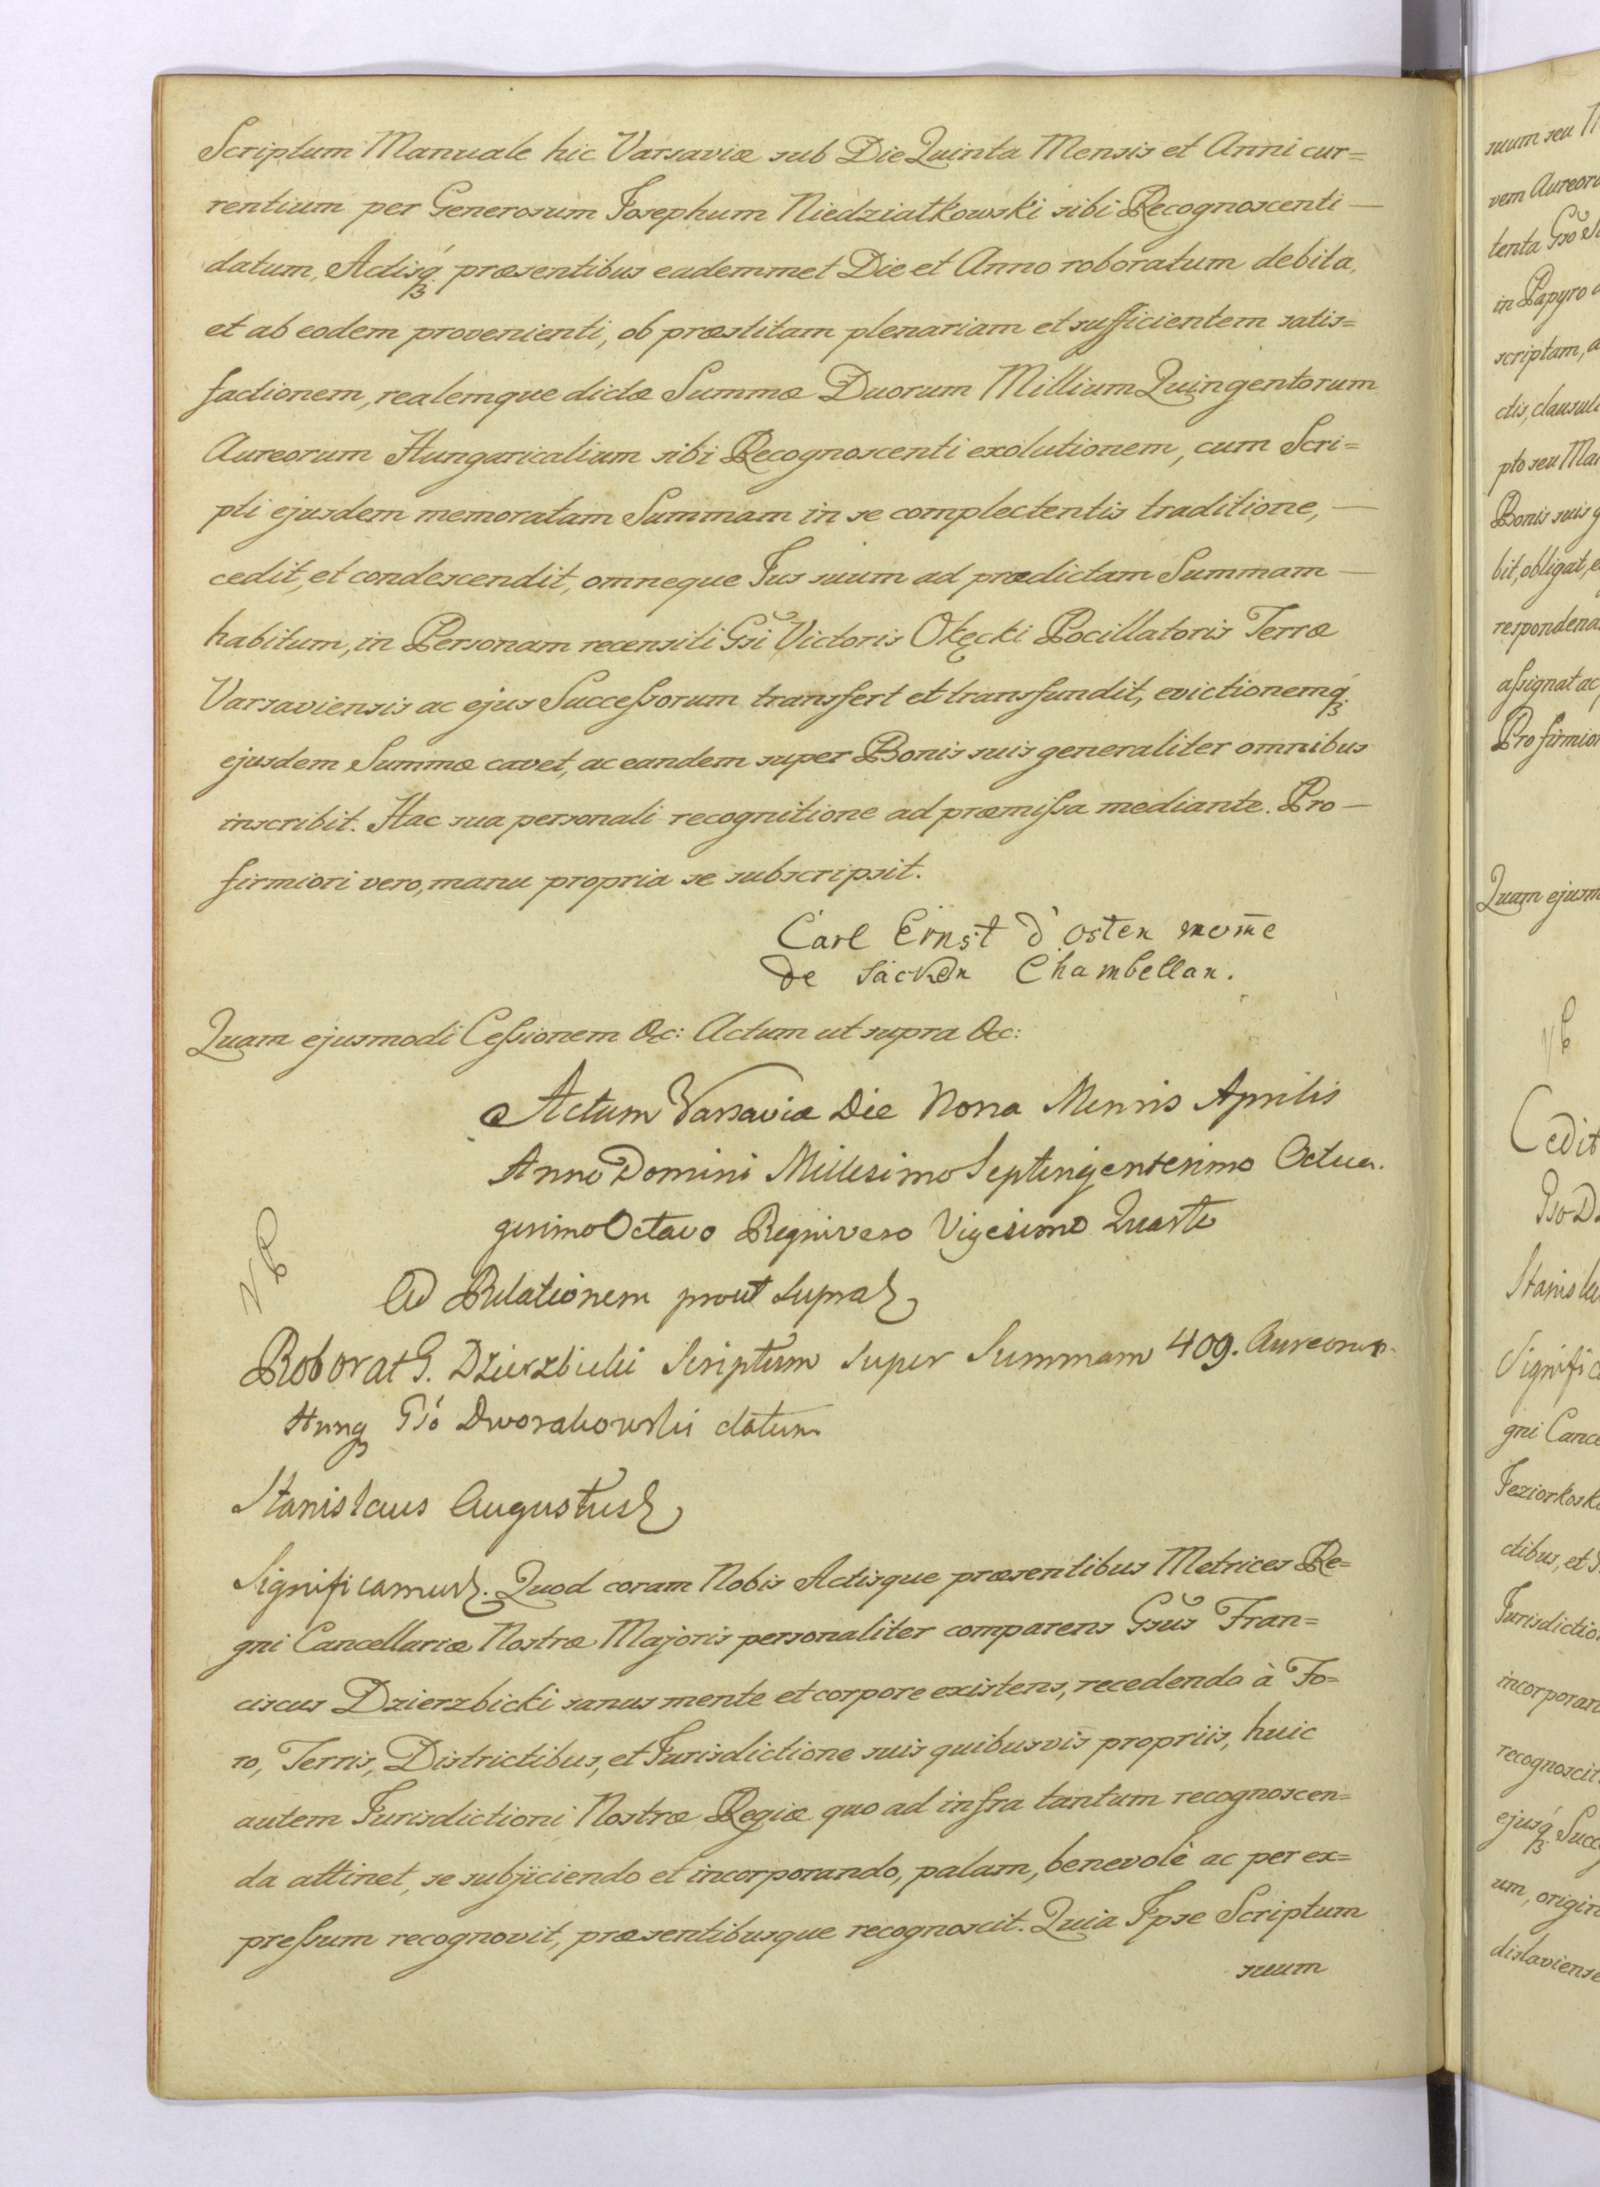 Scriptum Manuale hic Varsaviæ sub Die Quinta Mensis et Anni cur=
rentium per Generosum Josephum Niedziatkowski sibi Recognoscenti —
datum, Actisq́ꝫ præsentibus eademmet Die et Anno roboratum debita,
et ab eodem provenienti, ob præstitam plenariam et sufficientem satis=
factionem, realemque dictæ Summæ Duorum Millium Quingentorum
Aureorum Hungaricalium sibi Recognoscenti exolutionem, cum Scri=
pti ejusdem memoratam Summam in se complectentis traditione, —
cedit, et condescendit, omneque Jus suum ad prædictam Summam —
habitum, in Personam recensiti Gsi Victoris Okęcki Pocillatoris Terræ
Varsaviensis ac ejus Successorum transfert et transfundit, evictionemq́ꝫ
ejusdem Summæ cavet, ac eandem super Bonis suis generaliter omnibus
inscribit. Hac sua personali recognitione ad præmissa mediante. Pro —
firmiori vero, manu propria se subscripsit.
Carl Ernst d'osten
de Säcken Chambellan.
Quam ejusmodi Cessionem &c: Actum ut supra &c:
Actum Varsaviæ Die Nona Mensis Aprilis
Anno Domini Millesimo Septingentesimo Octua-
gesimo Octavo Regni vero Vigesimo Quarto
Ad Relationem prout supra
Roborat G. Dzierzbicki Scriptum super Summam 409. Aureorum
Hung Gsó Dworakowski datum
Stanislaus Augustus
Significamus. Quod coram Nobis Actisque præsentibus Metrices Re=
gni Cancellariæ Nostræ Majoris personaliter comparens Gsus Fran=
ciscus Dzierzbicki sanus mente et corpore existens, recedendo à Fo=
ro, Terris, Districtibus, et Jurisdictione suis quibusvis propriis, huic
autem Jurisdictioni Nostræ Regiæ quo ad infra tantum recognoscen=
da attinet, se subjiciendo et incorporando, palam, benevolè ac per ex=
pressum recognovit, præsentibusque recognoscit. Quia Ipse Scriptum
suum